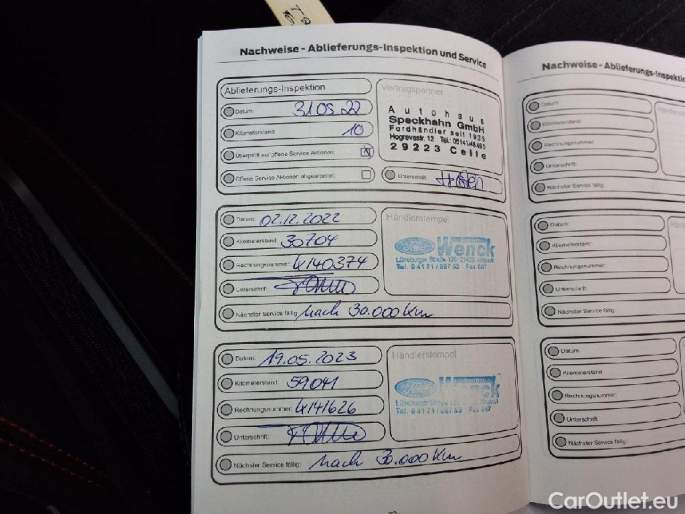 Nachweise - Ablieferungs-Inspektion und Service
Ablieferungs-Inspektion
Datum: 31.05.22
Kilometerstand: 10
Überprüft auf offene Service Aktionen:
Offene Service Aktionen abgearbeitet:
Vertragspartner
Autohaus
Speckhahn GmbH
Fordhändler seit 1925
29223 Celle
Unterschrift:
Datum: 02.12.2022
Kilometerstand: 30704
Rechnungsnummer: 4140374
Unterschrift:
Nächster Service fällig: nach 30.000 Km
Händlerstempel
Wenck
Datum: 19.05.2023
Kilometerstand: 59041
Rechnungsnummer: 4141626
Unterschrift:
Nächster Service fällig: nach 30.000 Km
Händlerstempel
Wenck
Nachweise - Ablieferungs-Inspektion
Datum:
Kilometerstand:
Rechnungsnummer:
Unterschrift:
Nächster Service fällig:
Datum:
Kilometerstand:
Rechnungsnummer:
Unterschrift:
Nächster Service fällig:
Datum:
Kilometerstand:
Rechnungsnummer:
Unterschrift:
Nächster Service fällig:
CarOutlet.eu